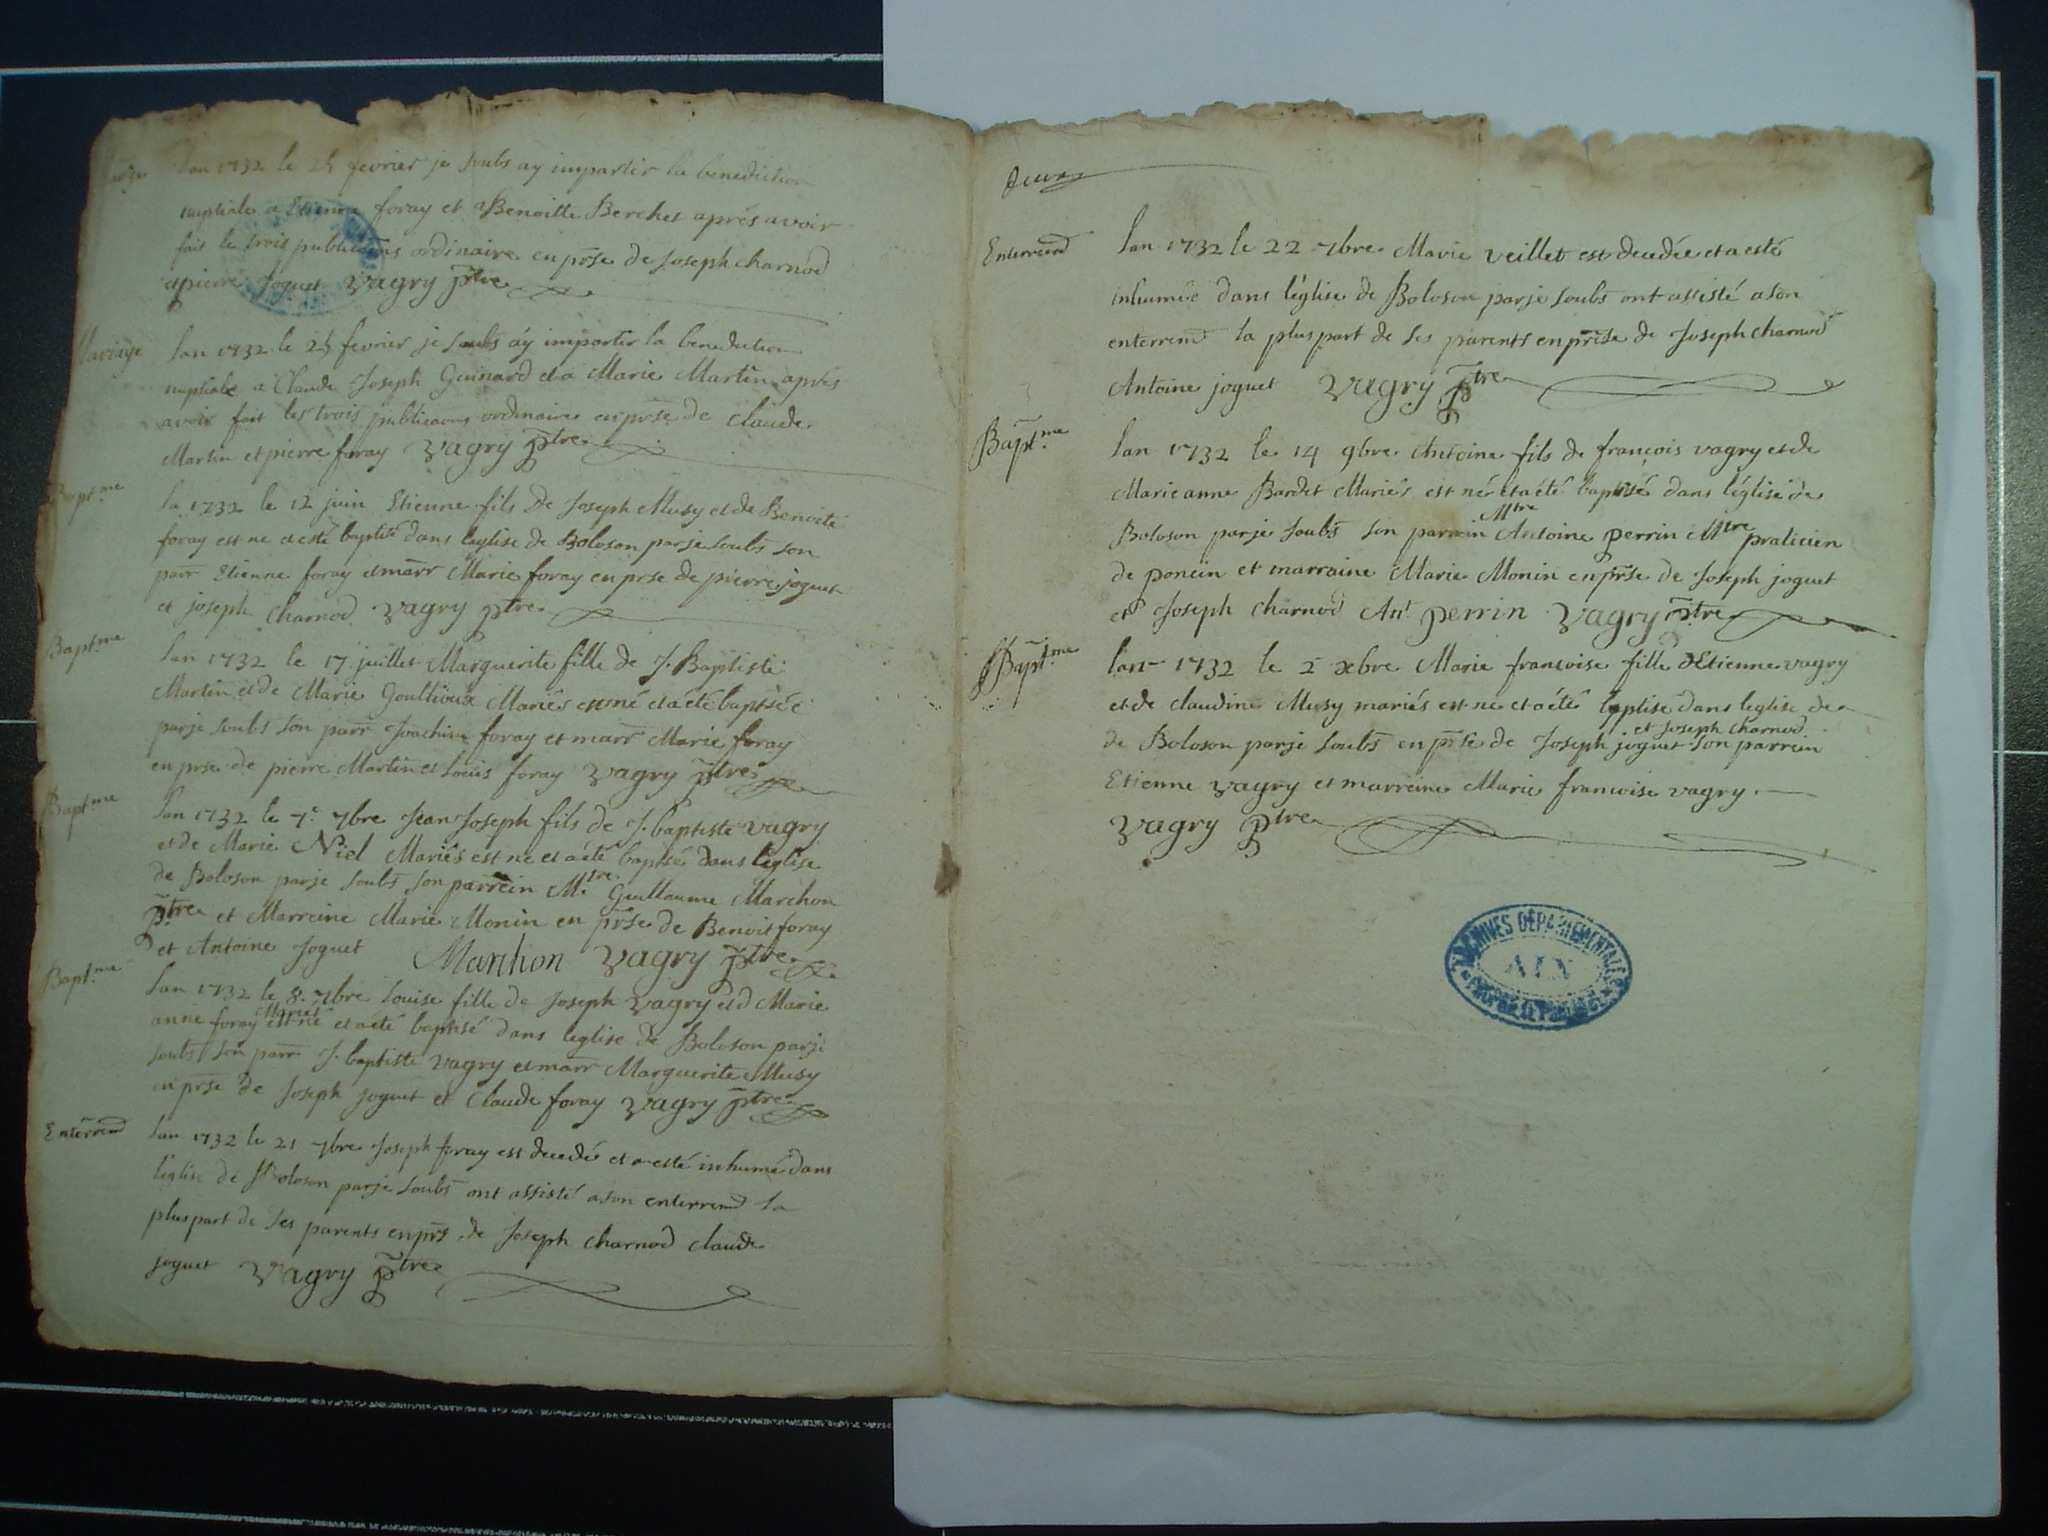 Mariage
lan 1732 le 25 fevrier je soubs ay impartir la benediction
nuptiale a Etienne foray et a Benoitte Berchet aprés avoir
fait le trois publicaõns ordinaire en prse de Joseph charnod
et pierre Joguet vagry ptre
Mariage
lan 1732 le 25 fevrier je soubs aÿ impartir la benediction
nuptiale a Claude Joseph Guinard et a Marie Martin aprés
avoir fait les trois publicaons ordinaire en prse de claude
Martin et pierre foray vagry ptre
Bapt.me
la 1732 le 12 juin Etienne fils de Joseph Musy et de Benoite
foray est ne et esté baptisé dans leglise de Boloson par je soubs son
parr Etienne foray et marr Marie foray en prse de pierre joguet
et joseph charnod vagry ptre
Bapt.me
lan 1732 le 17 juillet Marguerite fille de J. Baptiste
Martin et de Marie Mariés est né et a été baptisée
par je soubs son parr Joachim foray et marr Marie foray
en prse de pierre Martin et Louis foray vagry ptre
Bapt.me
lan 1732 le 7e 7bre Jean Joseph fils de J. baptiste vagry
et de Marie Niel Mariés est né et a été baptisé dans l'eglise
de Boloson par je soubs son parrein M.tre Guillaume Marchon
ptre et Marreine Marie Monin en prse de Benoit foray
et Antoine Joguet Marchon vagry ptre
Bapt.me
lan 1732 le 8e 7bre Louise fille de Joseph vagry et d Marie
anne foray Mariés est né et a été baptisé dans leglise de Boloson par je
soubs son parr J. baptiste vagry et marr Marguerite Musy
en prse de Joseph joguet et Claude foray vagry ptre
Enterremt
lan 1732 le 21 7bre Joseph foray est decedé et a esté inhumé dans
l'eglise de Boloson par je soubs ont assisté a son enterremt la
pluspart de ses parents en prs de Joseph charnod claude
joguet vagry ptre
deux
Enterremt
lan 1732 le 22 7bre Marie veillet est decedée et a esté
inhumée dans l'église de Boloson par je soubs ont assisté a son
enterremt la pluspart de ses parents en prese de Joseph charnod
Antoine joguet vagry ptre
Bapt.me
lan 1732 le 14 9bre Antoine fils de françois vagry et de
Marie anne Bardet Mariés est né et a été baptisé dans l'église de
Boloson par je soubs son parrain Mtre Antoine perrin Mtre praticien
de poncin et marraine Marie Monin en prse de Joseph joguet
et Joseph charnod Ant perrin vagry ptre
Bapt.me
lan 1732 le 2 xbre Marie francoise fille d'Etienne vagry
et de claudine Musy mariés est ne et a été baptisé dans leglise de
de Boloson par je soubs en prse de Joseph joguet et Joseph charnod son parrein
Etienne vagry et marreine Marie francoise vagry.
vagry ptre
ARCHIVES DÉPARTEMENTALES
AIN